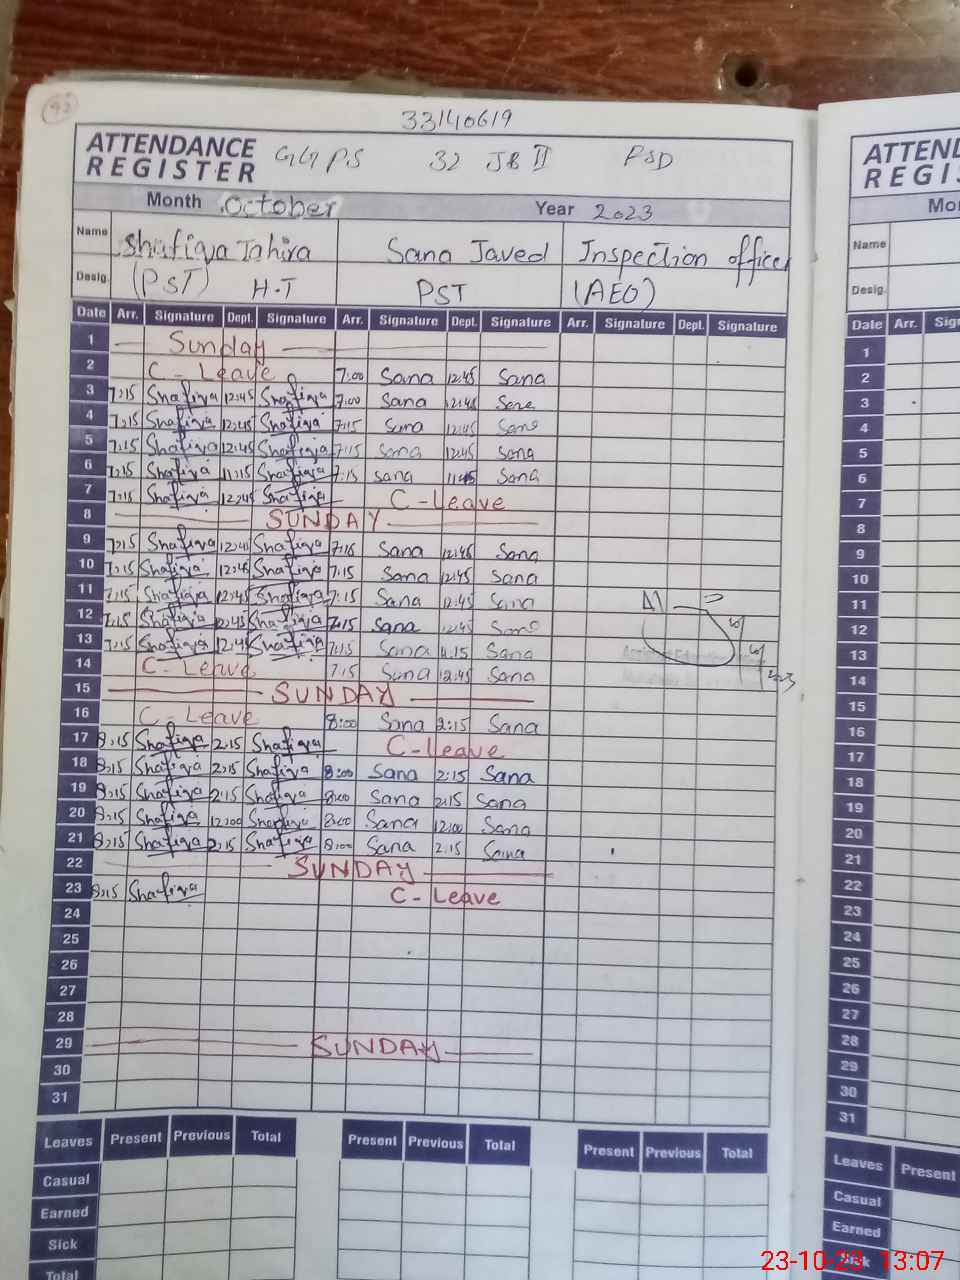 33140619
ATTENDANCE REGISTER GGPS 32 JB II FSD
Month October Year 2023
Name Shafiqa Tahira Sana Javed Inspection officer
Desig. (PST) H.T PST (AEO)
Date Arr. Signature Dept. Signature Arr. Signature Dept. Signature Arr. Signature Dept. Signature
1 Sunday
2 C - Leave 7:00 Sana 12:45 Sana
3 7:15 Shafiqa 12:45 Shafiqa 7:00 Sana 12:45 Sana
4 7:15 Shafiqa 12:45 Shafiqa 7:15 Sana 12:45 Sana
5 7:15 Shafiqa 12:45 Shafiqa 7:15 Sana 12:45 Sana
6 7:15 Shafiqa 11:15 Shafiqa 7:15 Sana Sana
7 7:15 Shafiqa 12:45 Shafiqa C - Leave
8 SUNDAY
9 7:15 Shafiqa 12:45 Shafiqa Sana 12:45 Sana
10 7:15 Shafiqa 12:45 Shafiqa 7:15 Sana 12:45 Sana
11 7:15 Shafiqa 12:45 Shafiqa 7:15 Sana 12:45 Sana
12 7:15 Shafiqa 12:45 Shafiqa 7:15 Sana 12:45 Sana
13 7:15 Shafiqa 12:45 Shafiqa 7:15 Sana Sana
14 C - Leave 7:15 Sana 12:45 Sana
15 SUNDAY
16 C - Leave 8:00 Sana 2:15 Sana
17 8:15 Shafiqa 2:15 Shafiqa C - Leave
18 8:15 Shafiqa 2:15 Shafiqa 8:00 Sana 2:15 Sana
19 8:15 Shafiqa 2:15 Shafiqa 8:00 Sana 2:15 Sana
20 8:15 Shafiqa 12:00 Shafiqa 8:00 Sana 12:00 Sana
21 8:15 Shafiqa 2:15 Shafiqa 8:00 Sana 2:15 Sana
22 SUNDAY
23 8:15 Shafiqa C - Leave
24
25
26
27
28
29 SUNDAY
30
31
Leaves Present Previous Total Present Previous Total Present Previous Total
Casual
Earned
Sick
Total
ATTEND
REGI
Name
Desig.
Date Arr.
1
2
3
4
5
6
7
8
9
10
11
12
13
14
15
16
17
18
19
20
21
22
23
24
25
26
27
28
29
30
31
Leaves Present
Casual
Earned
Sick
23-10-23 13:07